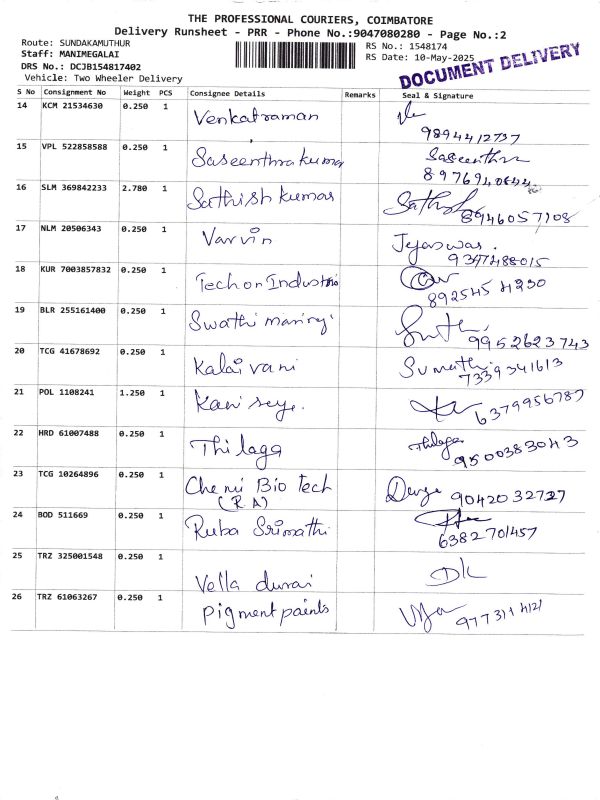 THE PROFESSIONAL COURIERS, COIMBATORE
Delivery Runsheet - PRR - Phone No.:9047080280 - Page No.:2
Route: SUNDAKAMUTHUR
Staff: MANIMEGALAI
DRS No.: DCJB154817402
Vehicle: Two Wheeler Delivery
RS No.: 1548174
RS Date: 10-May-2025
DOCUMENT DELIVERY
S No Consignment No Weight PCS Consignee Details Remarks Seal & Signature
14 KCM 21534630 0.250 1 Venkatraman
9894412737
15 VPL 522858588 0.250 1 Saseenthrakumar Saseenthra
8976940844
16 SLM 369842233 2.780 1 Sathish kumar Sathish
8946057108
17 NLM 20506343 0.250 1 Varvin Jejaswar.
9347488015
18 KUR 7003857832 0.250 1 Techon Industrio
8925454230
19 BLR 255161400 0.250 1 Swathi
9952623743
20 TCG 41678692 0.250 1 Kalaivani Sumathi
7339341613
21 POL 1108241 1.250 1
6379956787
22 HRD 61007488 0.250 1 Thilaga Thilaga
9500383043
23 TCG 10264896 0.250 1 Chemi Bio Tech
(R A)
Durga 9042032727
24 BOD 511669 0.250 1 Ruba Srimathi
6382701457
25 TRZ 325001548 0.250 1 Vella durai DK
26 TRZ 61063267 0.250 1 Pigment paints
9773114121